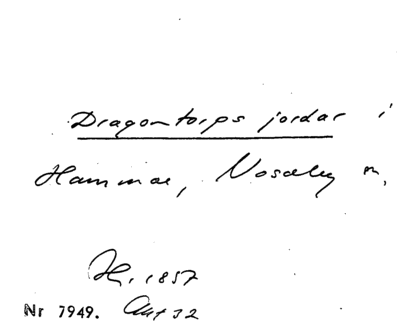 Dragontorps jordar i
Hammar, Nosaby m,
H. 1857
Nr 7949. Akt 32